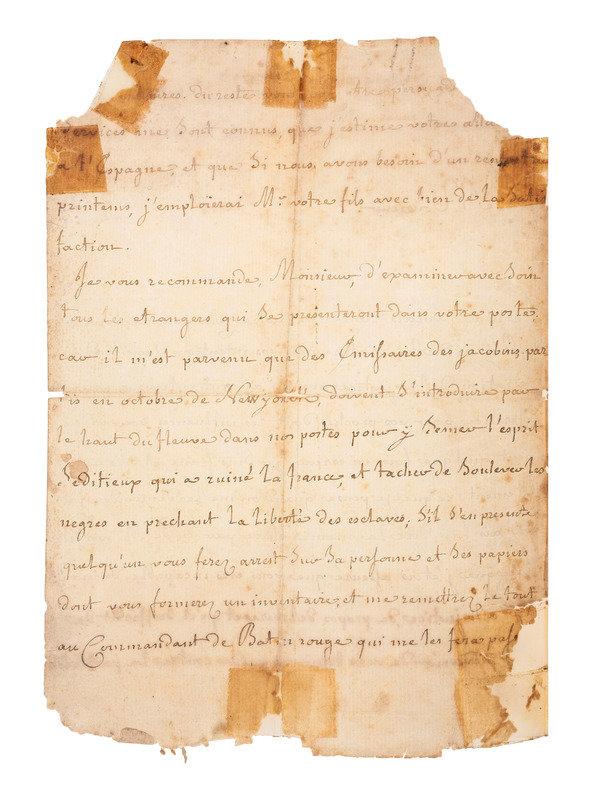 du reste
services me sont connus, que j'estime votre
a l'Espagne, et que si nous avons besoin d'un
printems, j'emploierai Mr. votre fils avec bien de la Satis
faction.
Je vous recommande, Monsieur, d'examiner avec Soin
tous les etrangers qui Se presenteront dans votre poste,
car il m'est parvenu que des Emissaires des jacobins, par
tis en octobre, de Newyorck, doivent S'introduire par
le haut du fleuve dans nos postes pour y Semer l'esprit
Seditieux qui a ruiné la france, et tacher de Soulever les
negres en prechant la liberté des esclaves, S'il S'en presente
quelqu'un vous ferez arrest Sur Sa personne et Ses papiers
dont vous formerez un inventaire, et me remettrez le tout
au Commandant de Baton rouge qui me les fera